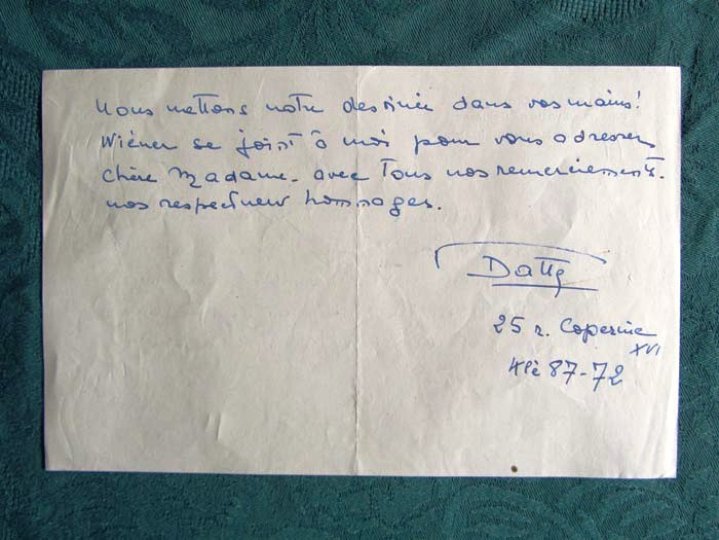 Nous mettons notre destinée dans vos mains!
Wiéner se joint à moi pour vous adresser,
chère Madame, avec tous nos remerciements,
nos respectueux hommages.
Datty
25 r. Copernic
XVI
Klé 87-72